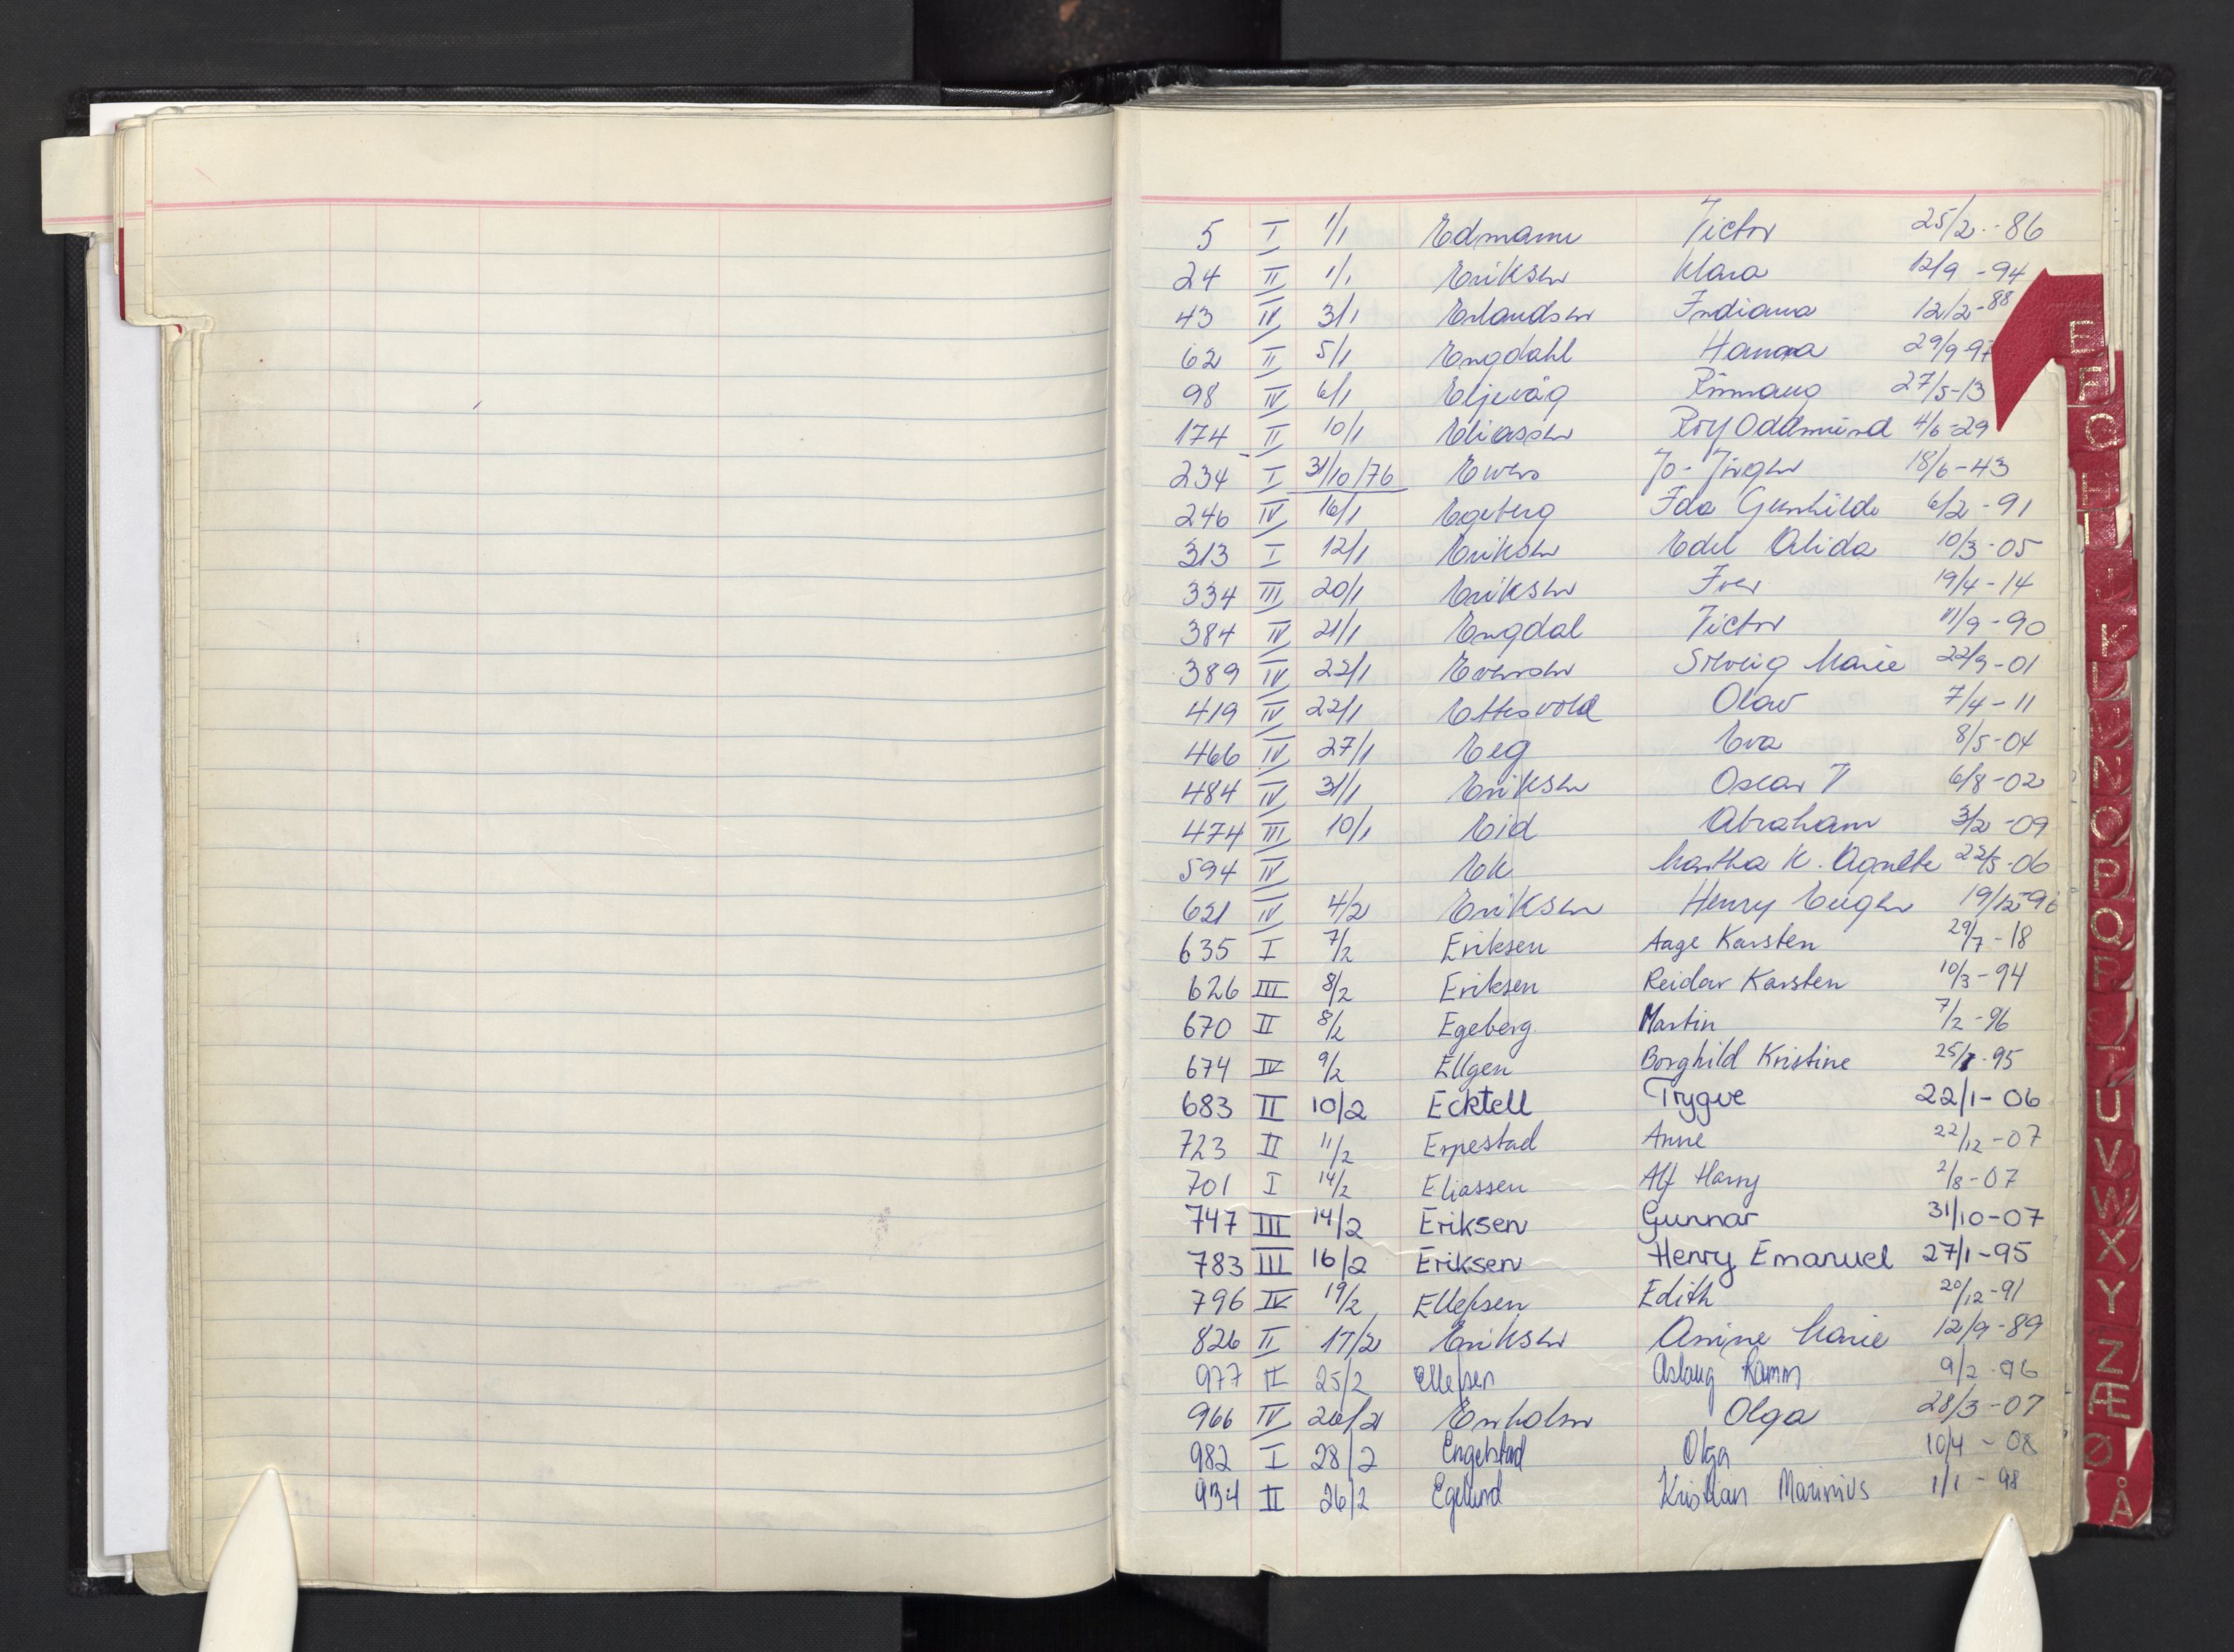 5 I 1/1 Edmann Victor 25/2 - 86
24 II 1/1 Eriksen Klara 12/9 - 94
43 IV 3/1 Erlandsen Indiana 12/2 - 88
62 II 5/1 Engdahl Hanna 29/9 - 97
98 IV 6/1 Eljevåg Rønnaug 27/5 - 13
174 II 10/1 Eliassen Roy Oddmund 4/6 - 29
234 I 31/10/76 Ewers Jo - Jørgen 18/6 - 43
246 IV 16/1 Egeberg Ida Gunhilde 6/2 - 91
313 I 12/1 Eriksen Edel Alida 10/3 - 05
334 III 20/1 Eriksen Iver 19/4 - 14
384 IV 21/1 Engdal Victor 11/9 - 90
389 IV 22/1 Evensen Solveig Marie 22/9 - 01
419 IV 22/1 Ettesvold Olav 7/4 - 11
466 IV 27/1 Eeg Eva 8/5 - 04
484 IV 31/1 Eriksen Oscar V 6/8 - 02
474 III 10/1 Eid Abraham 3/2 - 09
594 IV Ek Martha K. Agnethe 22/5 - 06
621 IV 4/2 Eriksen Henry Eugen 19/12 - 96
635 I 7/2 Eriksen Aage Karsten 29/7 - 18
626 III 8/2 Eriksen Reidar Karsten 10/3 - 94
670 II 8/2 Egeberg Martin 7/2 - 96
674 IV 9/2 Ellgen Borghild Kristine 25/7 - 95
683 II 10/2 Ecktell Trygve 22/1 - 06
723 II 11/2 Erpestad Anne 22/12 - 07
701 I 14/2 Eliassen Alf Harry 2/8 - 07
747 III 14/2 Eriksen Gunnar 31/10 - 07
783 III 16/2 Eriksen Henry Emanuel 27/1 - 95
796 IV 19/2 Ellefsen Edith 20/12 - 91
826 II 17/2 Eriksen Anine Marie 12/9 - 89
977 II 25/2 Ellefsen Aslaug Ramm 9/2 - 96
966 IV 26/2 Enholm Olga 28/3 - 07
982 I 28/2 Engelstad Olga 10/4 - 08
934 II 26/2 Egelund Kristian Marinius 1/1 - 98
E
F
G
H
I
K
L
N
O
P
Q
R
T
U
V
W
X
Y
Z
Æ
Ø
Å